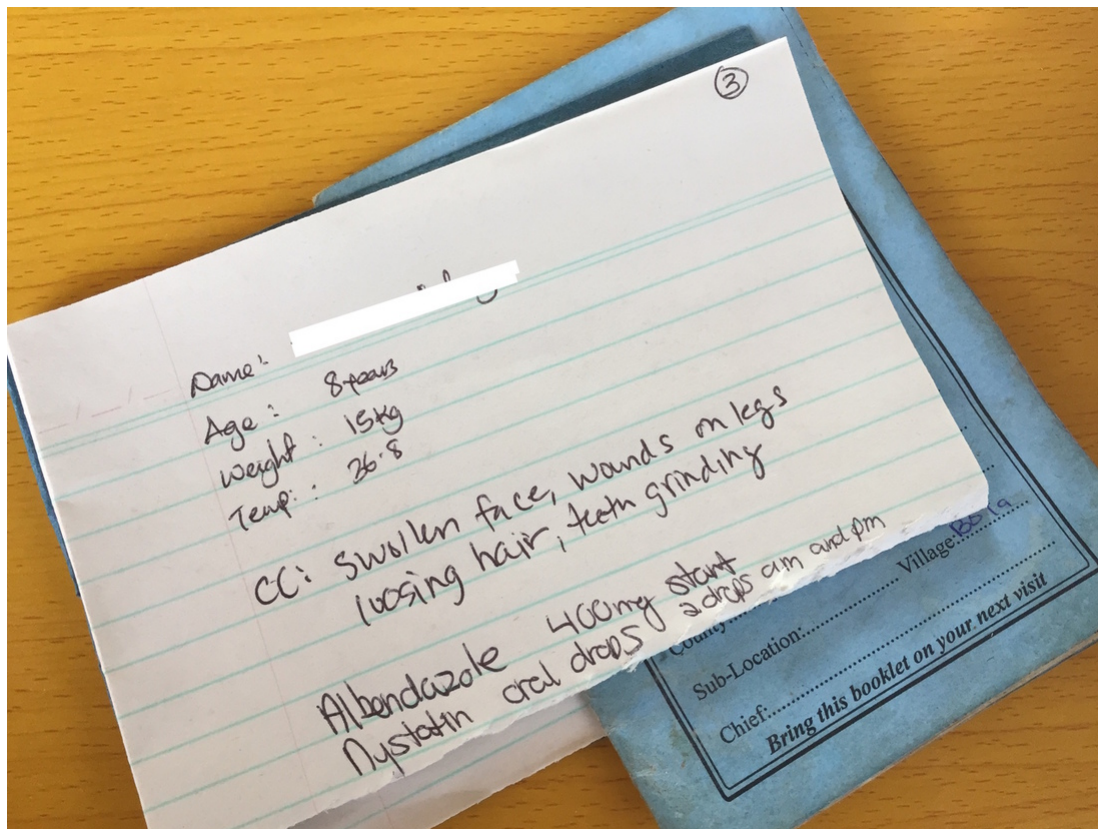 ③
Name:
Age: 8 years
Weight: 15kg
Temp: 36.8
CC: Swollen face, wounds on legs
loosing hair, teeth grinding
Albendazole 400mg start
Nystatin oral drops 2 drops am and pm
County
Village:
Sub-Location:
Chief:
Bring this booklet on your next visit